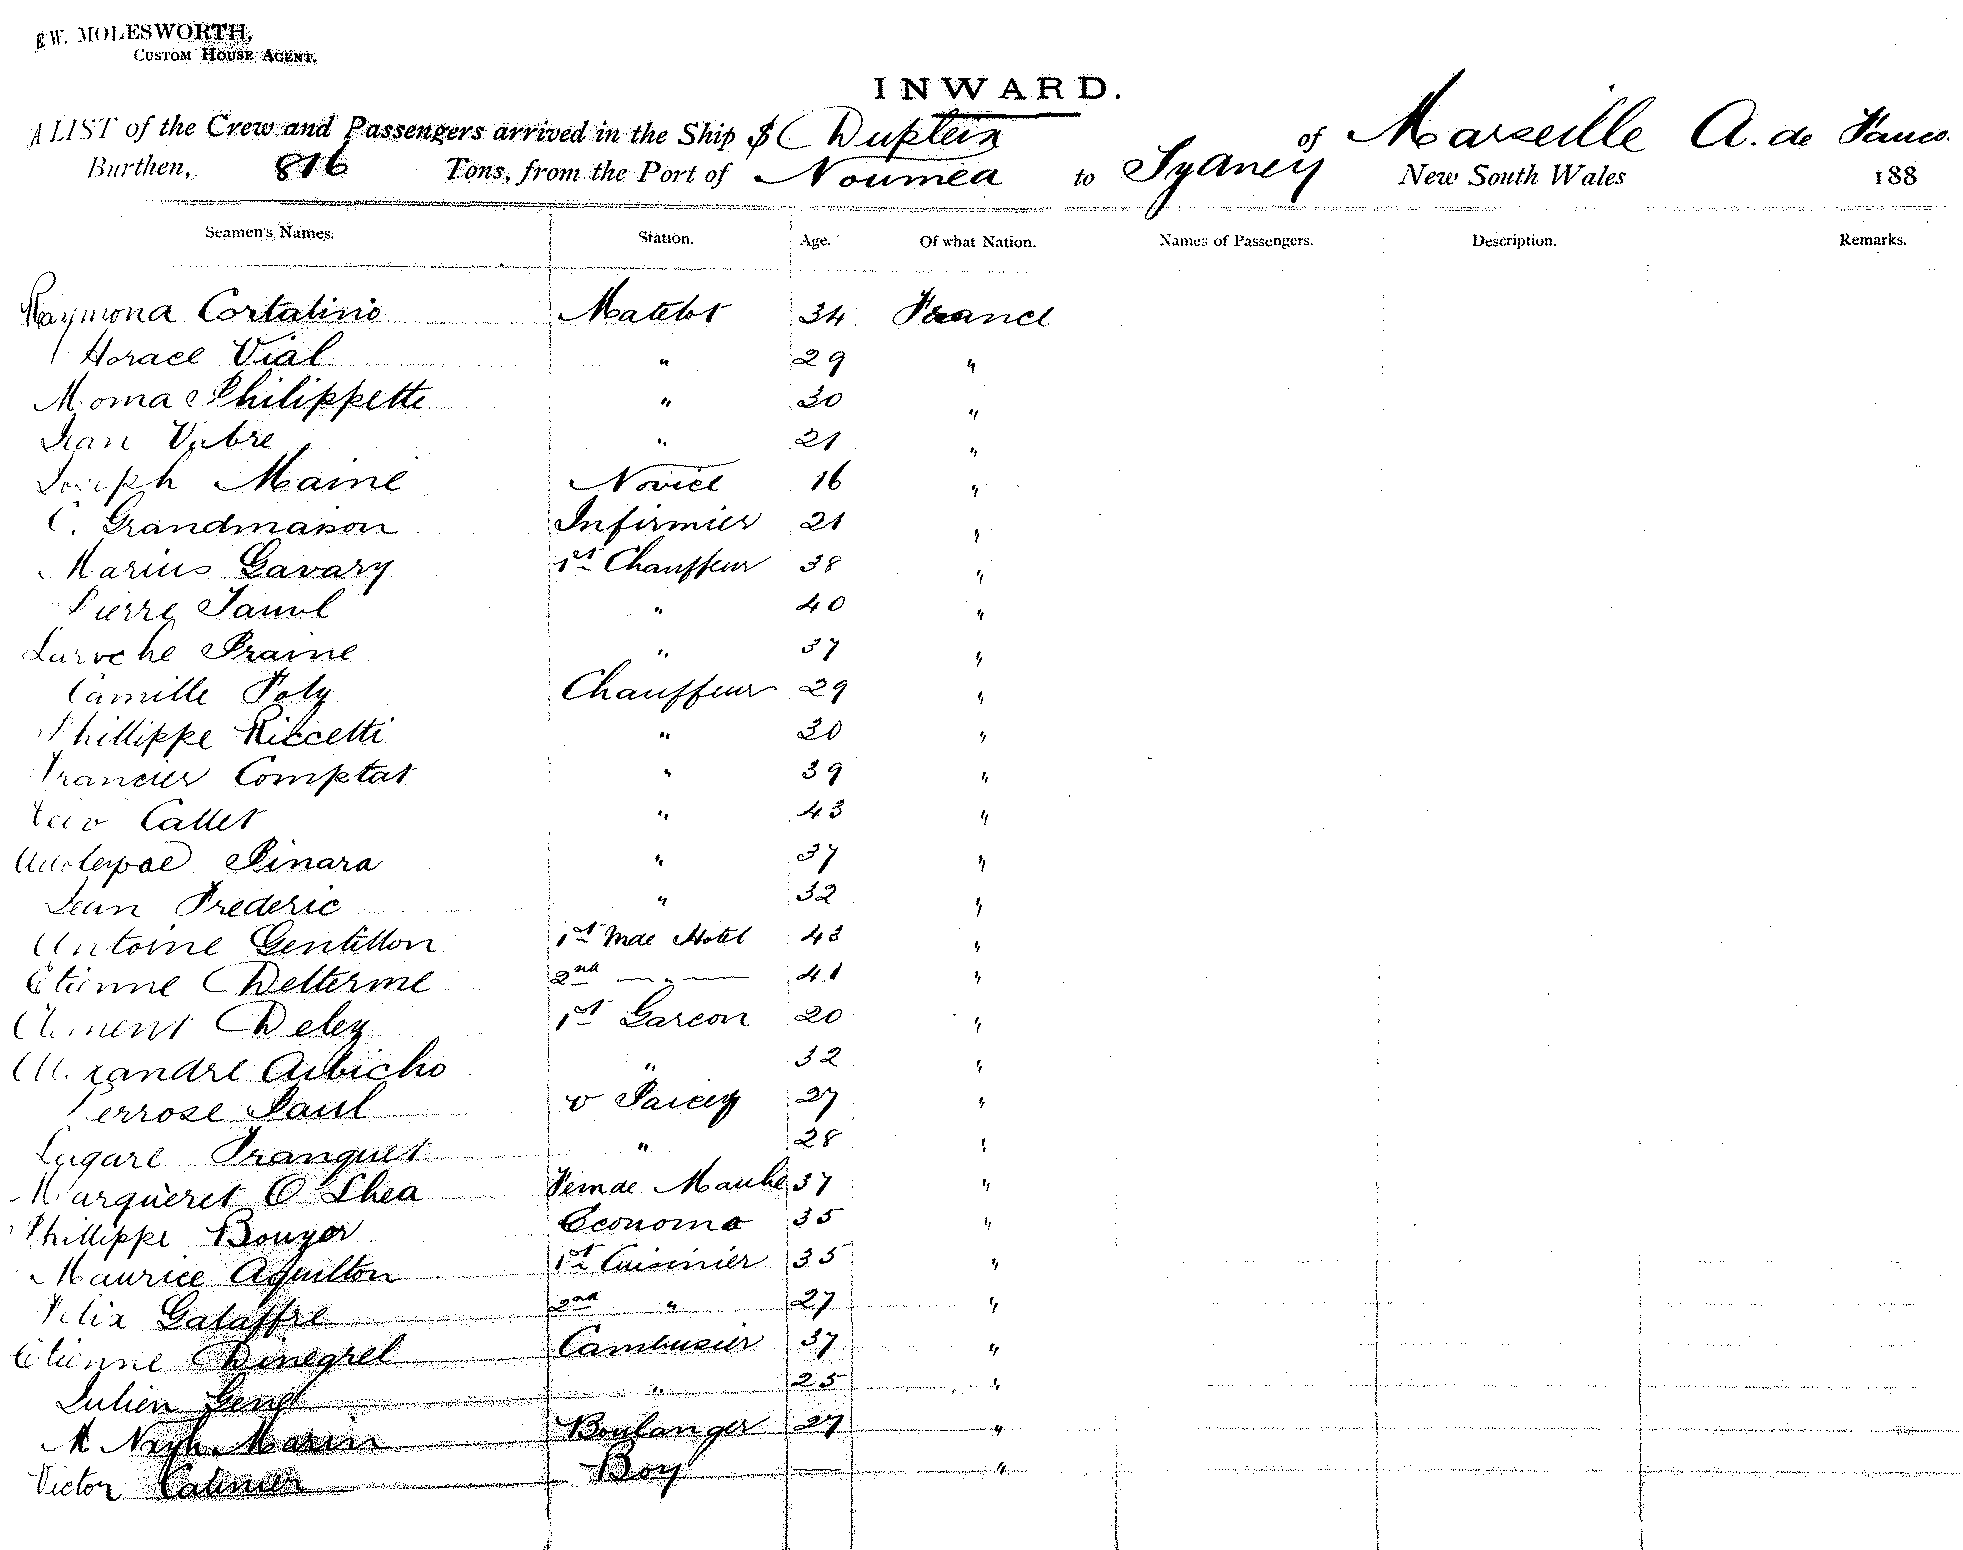 E W. MOLESWORTH,
CUSTOM HOUSE AGENT.
INWARD.
A LIST of the Crew and Passengers arrived in the Ship S Dupleix of Marseille A. de
Burthen, 816 Tons, from the Port of Noumea to Sydney New South Wales 188
Seamen's Names. Station. Age. Of what Nation. Names of Passengers. Description. Remarks.
Raymond Cortalino Matelot 34 France
Horace Vial " 29 "
Moma Philippette " 30 "
Jean Vabre " 21 "
Joseph Maine Novice 16 "
C. Grandmaison Infirmier 21 "
Marius Gavary 1st Chauffeur 38 "
Pierre " 40 "
Laroche Praine " 37 "
Camille Foly Chauffeur 29 "
Phillippe Riccetti " 30 "
Francier Comptat " 39 "
Callet " 43 "
Pinara " 37 "
Jean Frederic " 32 "
Antoine Gentillon 1st Mde Hotel 43 "
Etienne Delterme 2nd — " — 41 "
Clement Deley 1st Garcon 20 "
Alexandre Aubicho " 32 "
Perrose Paul 27 "
Franquet " 28 "
Margueret O'Shea 37 "
Phillippe Bouyer Econome 35 "
Maurice Aguilton 1st Cuisinier 35 "
Felix Galaffre 2nd " 27 "
Etienne Dinegrel Cambusier 37 "
Julien Genet " 25 "
M Marin Boulanger 27 "
Victor Catinier Boy — "